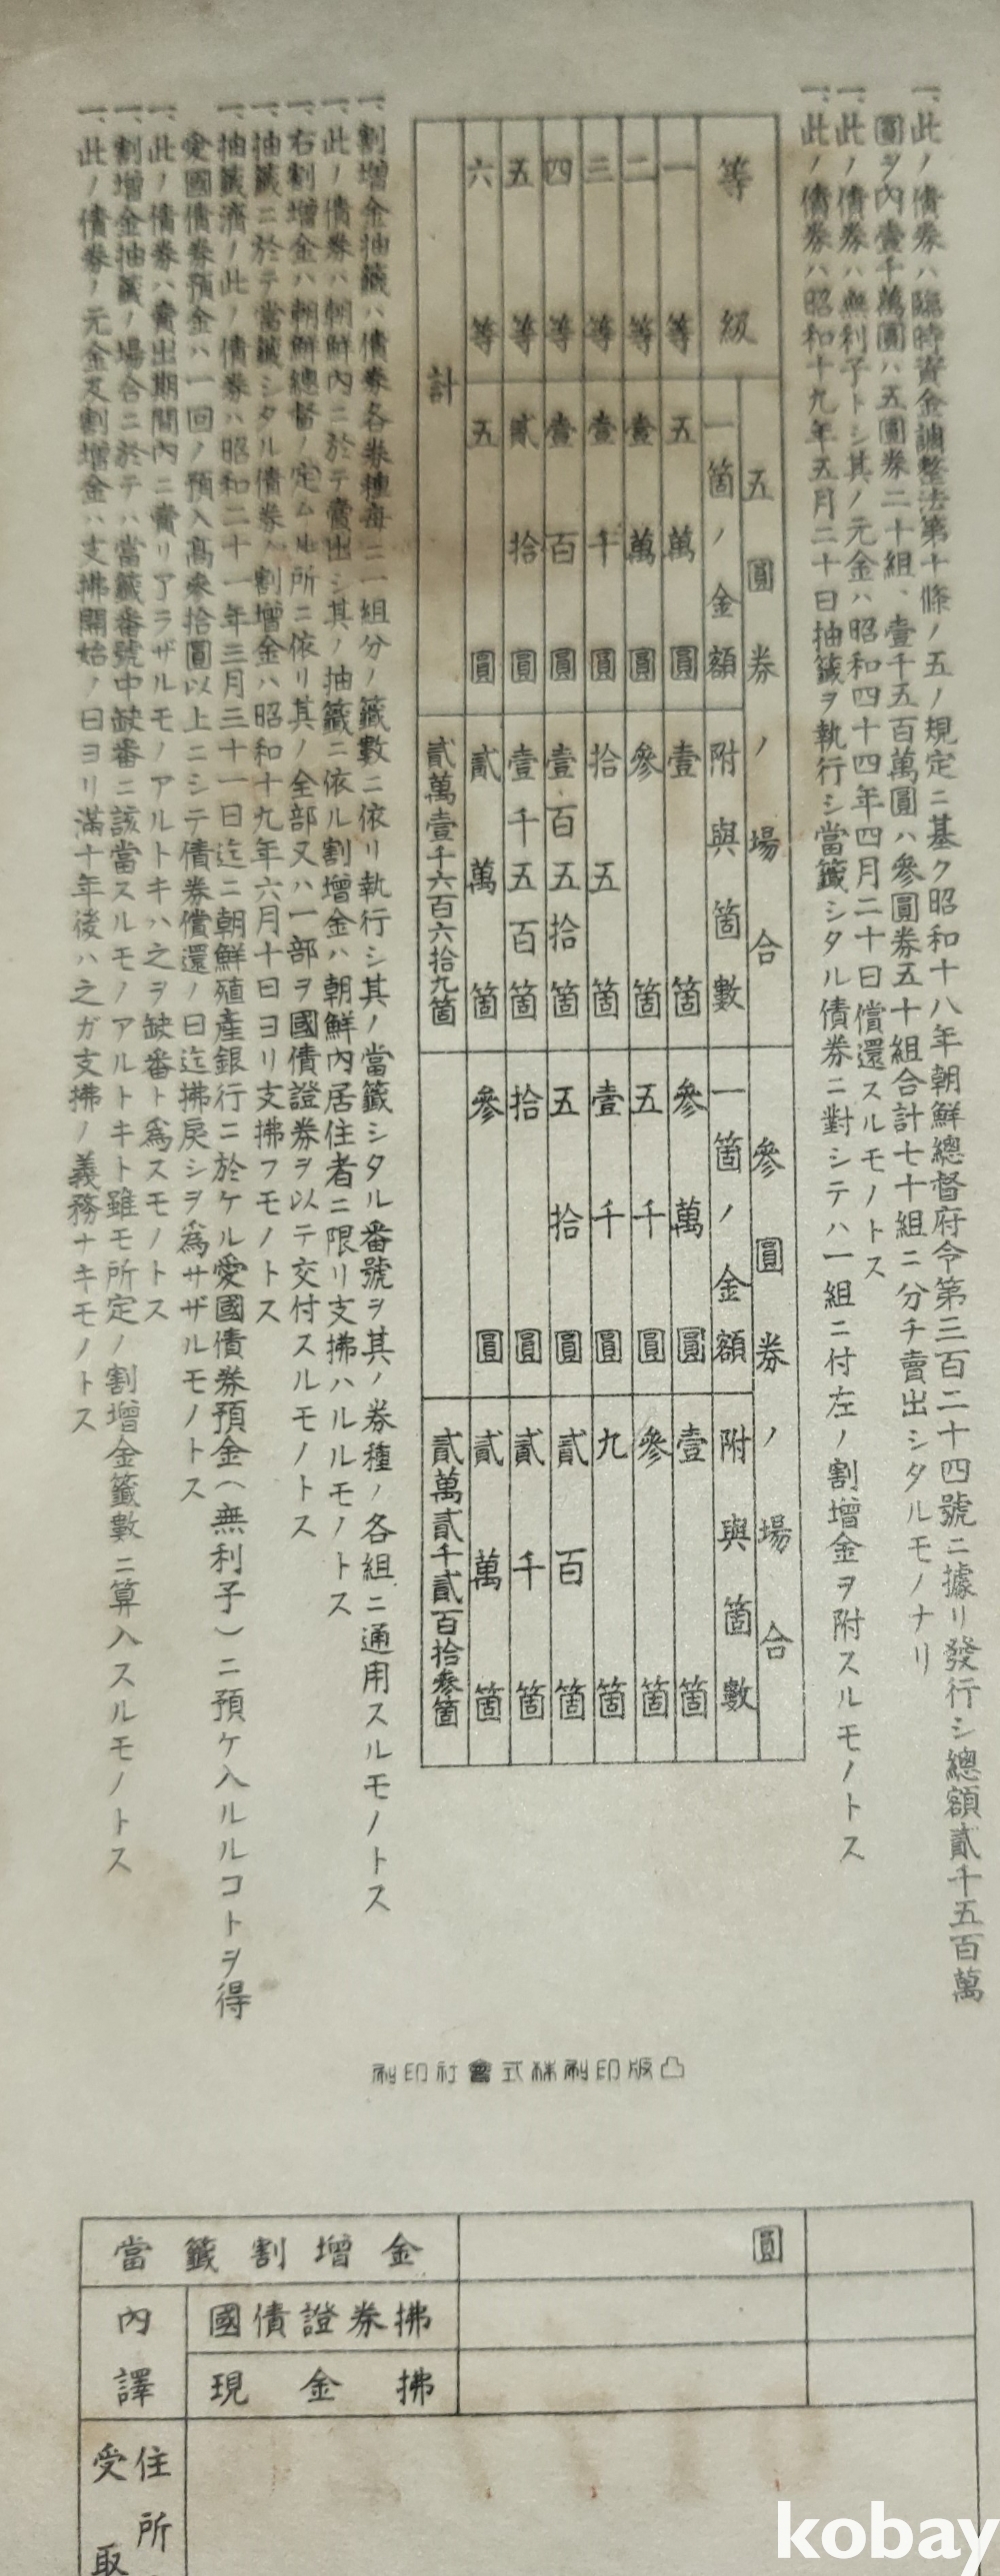 一、此ノ債券ハ臨時資金調整法第十條ノ五ノ規定ニ基ク昭和十八年朝鮮總督府令第三百二十四號ニ據リ發行シ總額貳千五百萬
圓ヲ內壹千萬圓ハ五圓券二十組、壹千五百萬圓ハ參圓券五十組合計七十組ニ分チ賣出シタルモノナリ
一、此ノ債券ハ無利子トシ其ノ元金ハ昭和四十四年四月二十日償還スルモノトス
一、此ノ債券ハ昭和十九年五月二十日抽籤ヲ執行シ當籤シタル債券ニ對シテハ一組ニ付左ノ割增金ヲ附スルモノトス
等級 五圓券ノ場合 參圓券ノ場合
一箇ノ金額 附與箇數 一箇ノ金額 附與箇數
一等 五萬圓 壹箇 參萬圓 壹箇
二等 壹萬圓 參箇 五千圓 參箇
三等 壹千圓 拾五箇 壹千圓 九箇
四等 壹百圓 壹百五拾箇 五拾圓 貳百箇
五等 貳拾圓 壹千五百箇 拾圓 貳千箇
六等 五圓 貳萬箇 參圓 貳萬箇
計 貳萬壹千六百六拾九箇 貳萬貳千貳百拾參箇
一、割增金抽籤ハ債券各券種每ニ一組分ノ籤數ニ依リ執行シ其ノ當籤シタル番號ヲ其ノ券種ノ各組ニ通用スルモノトス
一、此ノ債券ハ朝鮮內ニ於テ賣出シ其ノ抽籤ニ依ル割增金ハ朝鮮內居住者ニ限リ支拂ハルルモノトス
一、右割增金ハ朝鮮總督ノ定ムル所ニ依リ其ノ全部又ハ一部ヲ國債證券ヲ以テ交付スルモノトス
一、抽籤ニ於テ當籤シタル債券ノ割增金ハ昭和十九年六月十日ヨリ支拂フモノトス
一、抽籤濟ノ此ノ債券ハ昭和二十一年三月三十一日迄ニ朝鮮殖產銀行ニ於ケル愛國債券預金(無利子)ニ預ケ入ルルコトヲ得
愛國債券預金ハ一回ノ預入高參拾圓以上ニシテ債券償還ノ日迄拂戾シヲ爲サザルモノトス
一、此ノ債券ハ賣出期間內ニ賣リアラザルモノアルトキハ之ヲ缺番ト爲スモノトス
一、割增金抽籤ノ場合ニ於テハ當籤番號中缺番ニ該當スルモノアルトキト雖モ所定ノ割增金籤數ニ算入スルモノトス
一、此ノ債券ノ元金及割增金ハ支拂開始ノ日ヨリ滿十年後ハ之ガ支拂ノ義務ナキモノトス
凸版印刷株式會社印刷
當籤割增金 圓
內譯 國債證券拂
現金拂
住所
受取
kobay